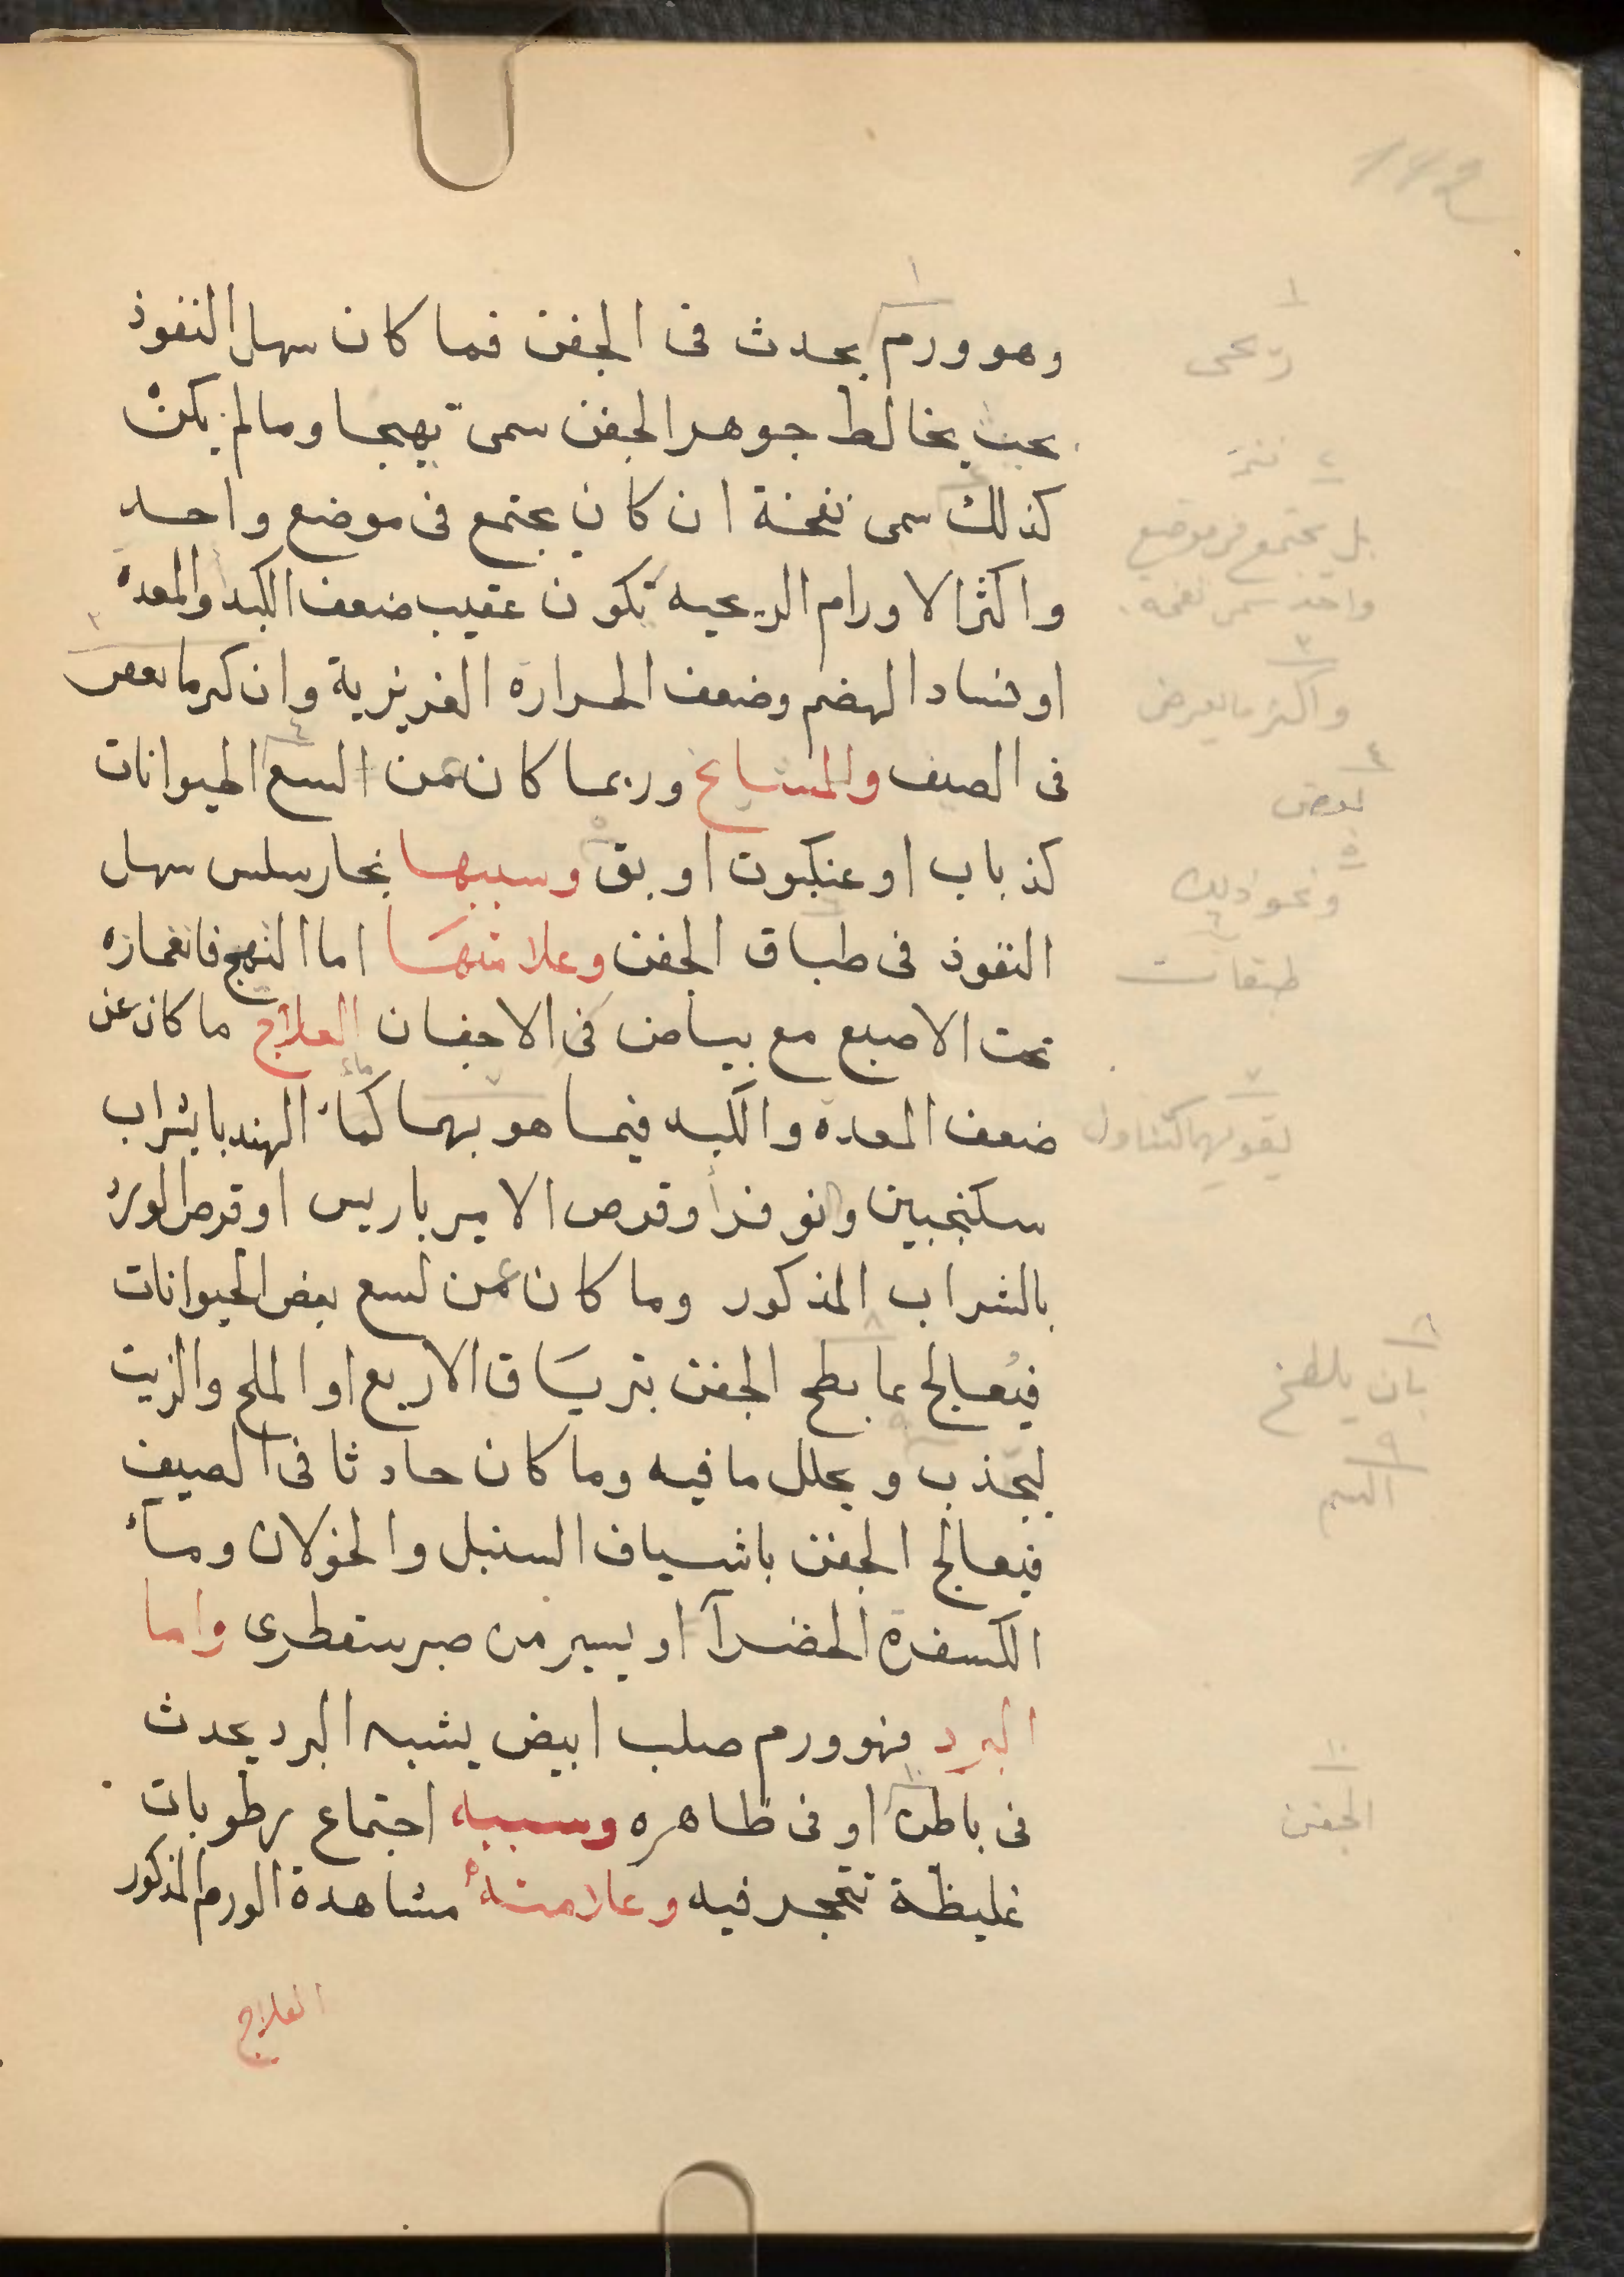 وهو ورم يحدث فى الجفن فما كان سهل النفوذ
بحيث يخالط جوهر الجفن سمى تهيجا وما لم يكن
كذلك سمى نفخة ان كان يجتمع فى موضع واحد
واكثر الاورام الريحيه تكون عقيب ضعف الكبد والمعدة
او فساد الهضم وضعف الحرارة الغريزية وان كرما بعض
فى الصيف والمشايخ وربما كان عن السع الحيوانات
كذباب او عنكبوت او بق وسببها بخار سلس سهل
النفوذ فى طباق الجفن وعلامتها اما التهيج فانغمازه
تحت الاصبع مع بياض فى الاجفان العلاج ما كان عن
ضعف المعدة والكبد فيما هو بهما كماء الهندبا بشراب
سكنجبين ونوفر او قرص الامير باريس او قرص الورد
بالشراب المذكور وما كان عن لسع بعض الحيوانات
فيعالج بما بطح الجفن بترياق الاربع او الملح والزيت
ليجذب ويحلل ما فيه وما كان حادثا فى الصيف
فيعالج الجفن باشياف السنبل والخولان وماء
الكسفرة الخضرآ او يسير من صبر سقطرى واما
البرد فهو ورم صلب ابيض يشبه البرد يحدث
فى باطنه او فى ظاهره وسببه اجتماع رطوبات
غليظة تتحجر فيه وعلامته مشاهدة الورم المذكور
العلاج
١
ريحى
٢
بل يجتمع فى موضع
واحد سمى نفخه
٣
واكثر ما يعرض
٤
بعض
٥
ونحو ذلك
٦
طبقات
٧
يقويهما كتناول
٨
بان يلطخ
٩
السم
١٠
الجفن